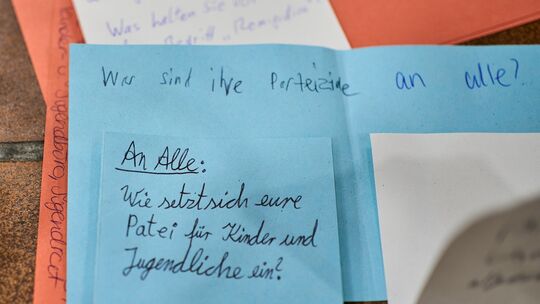 Was halten Sie von
Begriff „Remigration"
Was sind ihre Parteiziele an alle?
An Alle:
Wie setzt sich eure
Patei für Kinder und
Jugendliche ein?
Kinder- u. Jugendbüro, Jugendrat